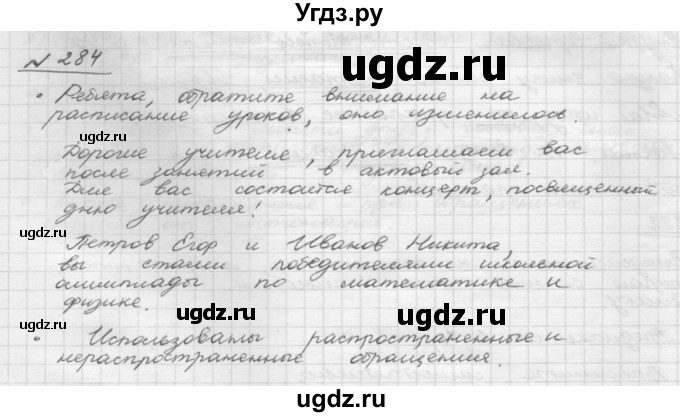 Угдз.ру
№ 284
ugdz.ru
• Ребята, обратите внимание на
расписание уроков, оно изменилось.
ugdz.ru
ugdz.ru
Дорогие учителя, приглашаем вас
после занятий в актовый зал.
ugdz.ru
Для вас состоится концерт, посвященный
дню учителя!
ugdz.ru
ugdz.ru
Петров Егор и Иванов Никита,
вы стали победителями школьной
олимпиады по математике и
физике.
ugdz.ru
ugdz.ru
• Использованы распространенные и
нераспространенные обращения.
ugdz.ru
ugdz.ru